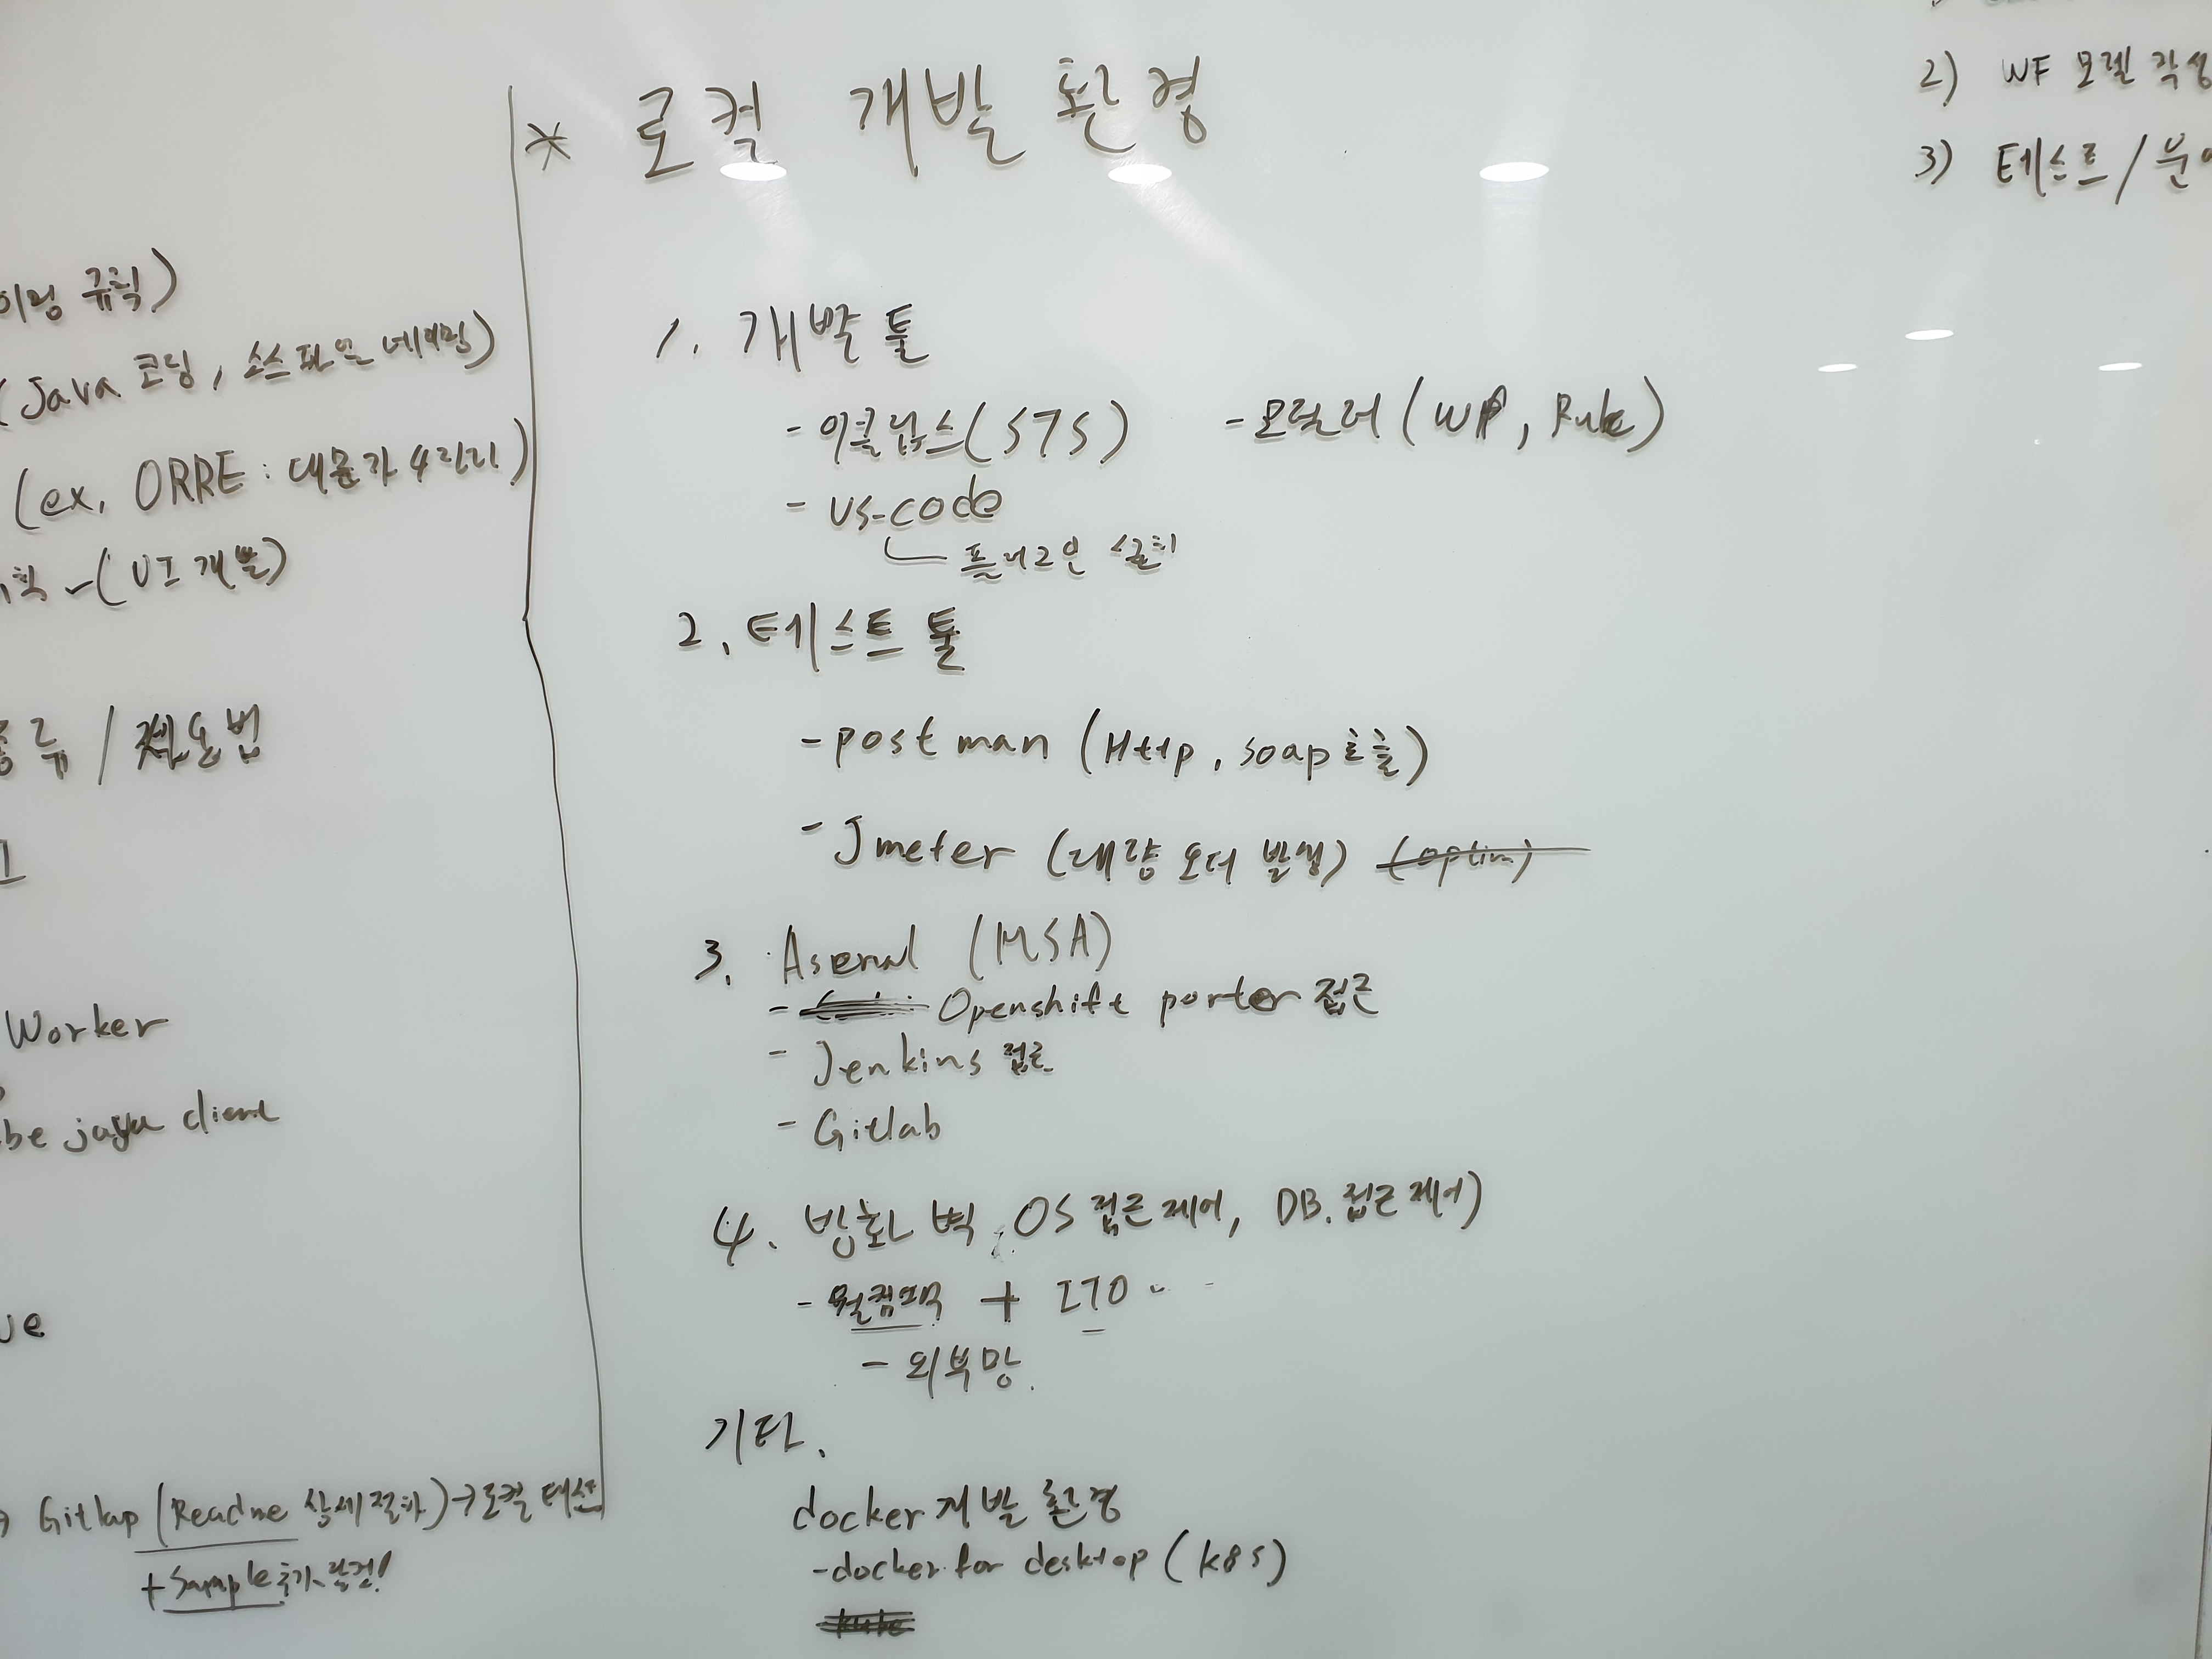 이밍 규칙)
(Java 코딩, 소스파일 네이밍)
(ex. ORRE : 대문자 4자리)
칙 -(UI 개발)
종류 / 적용법
Worker
be java client
ue
Gitlap (Readme 상세절차) → 로컬 테스트
+ Sample 추가할것!
* 로컬 개발 환경
1. 개발 툴
- 이클립스(STS) - 모델러 (WF, Rule)
- vs-code
플러그인 설치
2. 테스트 툴
- postman (Http, soap 호출)
- Jmeter (대량 오더 발생) (option)
3. Asenal (MSA)
- Openshift porter 접근
- Jenkins 접근
- Gitlab
4. 방화벽, OS 접근제어, DB.접근제어)
- 웰컴팩 + ITO
- 외부망.
기타.
docker 개발 환경
- docker for desktop (k8s)
kube
2) WF 모델 작성
3) 테스트 /